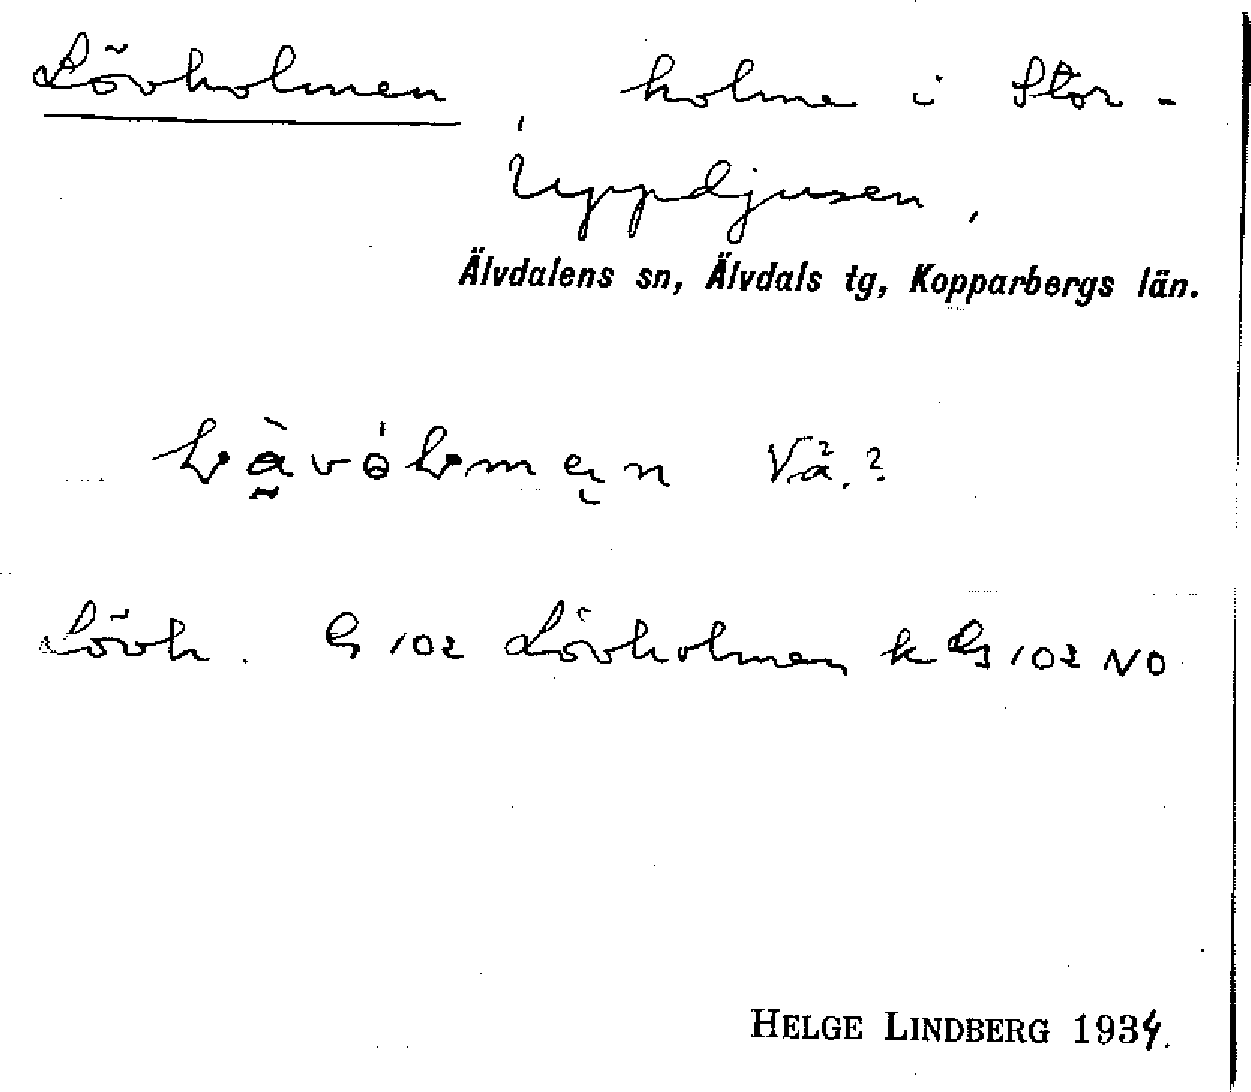 Lövholmen, holme i Stor-
Uppdjusen,
Älvdalens sn, Älvdals tg, Kopparbergs län.
Vå.?
Lövh. G 102 Lövholmen k G 102 NO
HELGE LINDBERG 1934.